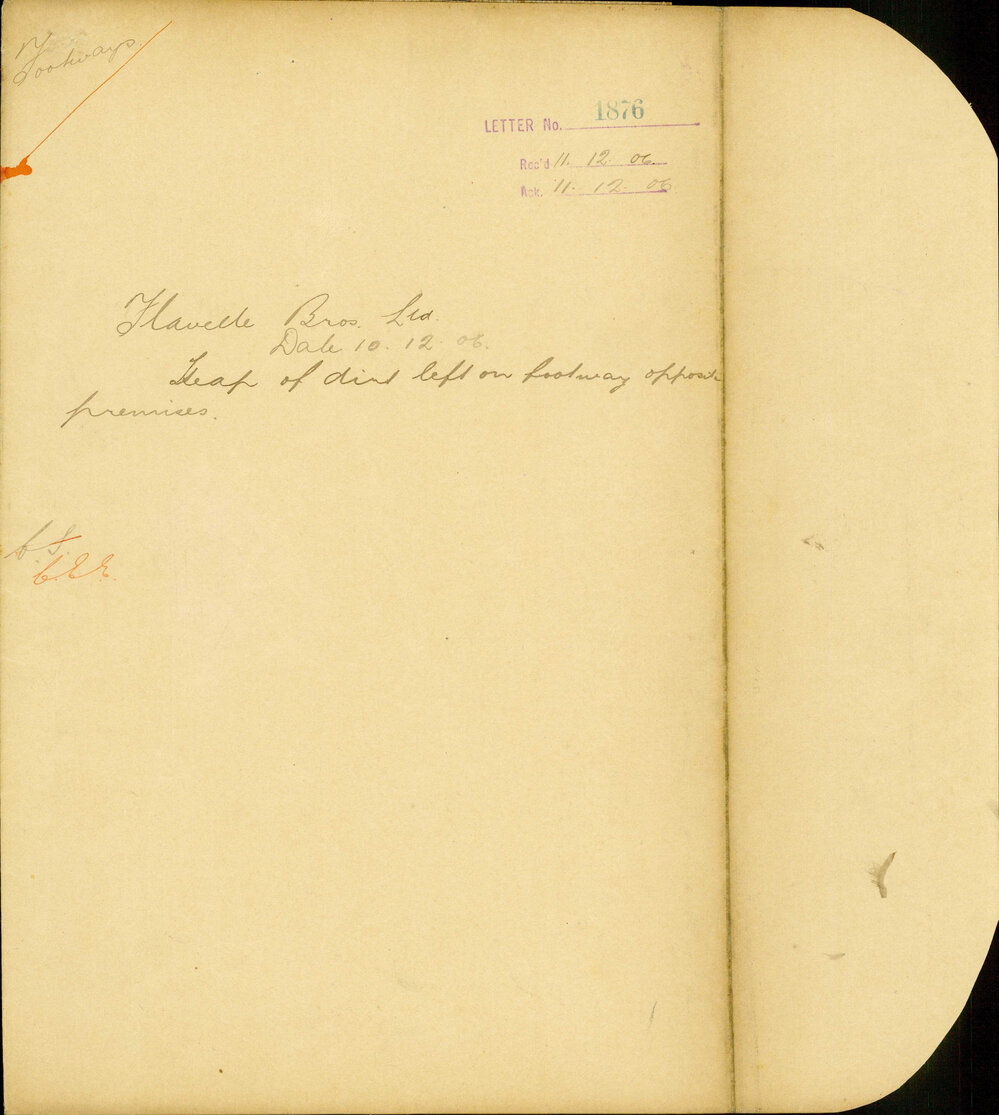 Footways.
LETTER No. 1876
Rec'd 11. 12. 06.
Ack. 11. 12. 06
Flavelle Bros. Ltd.
Date 10. 12. 06.
Heap of dirt left on footway opposite
premises.
C.S.
C.E.E.